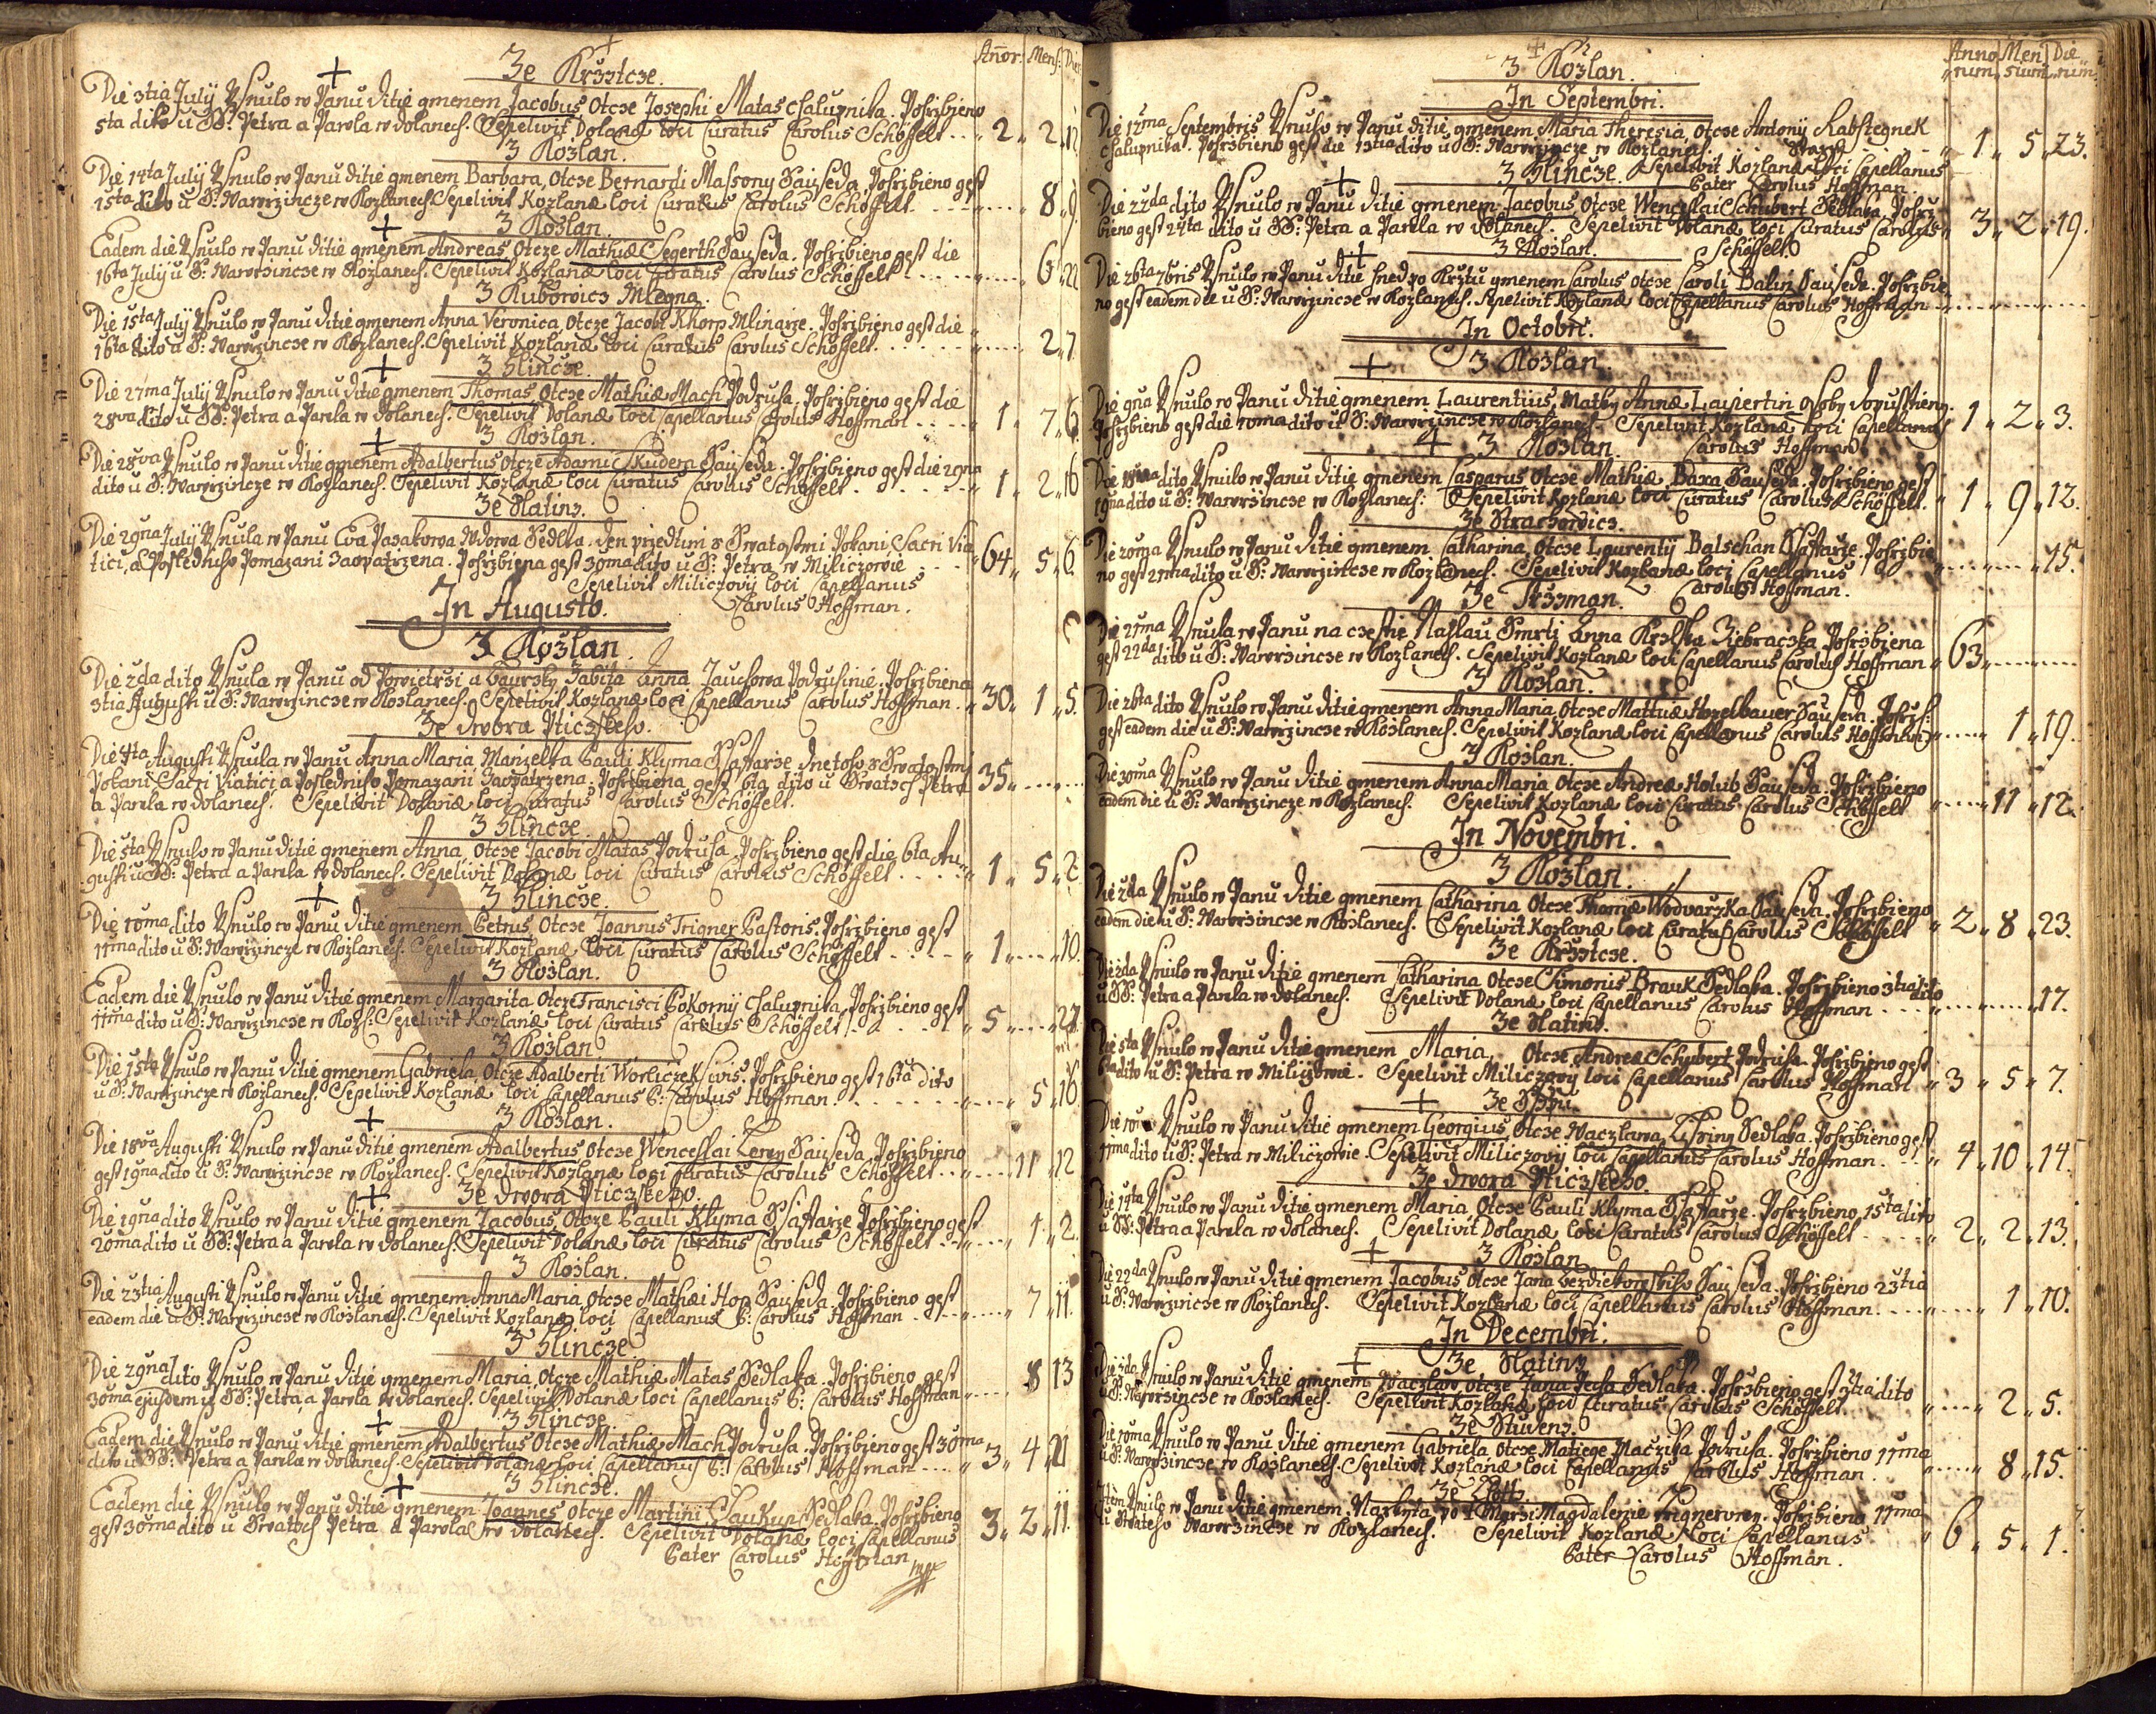 Añor: Mens: Die
Ze Krsstcze.
Die 3tia July Usnulo w Panu ditie gmenem Jacobus, Otcze Josephi Matas chalupnika. Pohrzbieno
5ta dito u SS: Petra a Pawla w dolanech. Sepelivit Dolanæ loci Curatus Carolus Schöffelt . . . 2 " 2 " 12
Z Kozlan.
Die 14ta July Usnulo w Panu ditie gmenem Barbara, Otcze Bernardi Massony Sauseda. Pohrzbieno gest
15ta dito u S: Wawrzincze w Kozlanech Sepelivit Kozlanæ loci Curatus Carolus Schöffelt . . . 8 " 9
Z Kozlan.
Eadem die Usnulo w Panu ditie gmenem Andreas, Otcze Mathiæ Segerth Sauseda. Pohrzbieno gest die
16ta July u S: Wawrzincze w Kozlanech. Sepelivit Kozlanæ loci Curatus Carolus Schöffelt . . . 6 " 22
Z Kubowicz Mlegna.
Die 15ta July Usnulo w Panu ditie gmenem Anna Veronica, Otcze Jacobi Khorp Mlinarze. Pohrzbieno gest die
16ta dito u S: Wawrzincze w Kozlanech. Sepelivit Kozlanæ loci Curatus Carolus Schöffelt . . . 2 " 7
Z Hlincze.
Die 27ma July Usnulo w Panu ditie gmenem Thomas, Otcze Mathiæ Mach Podruha. Pohrzbieno gest die
28va dito u SS: Petra a Pawla w dolanech. Sepelivit Dolanæ loci Capellanus Carolus Hoffman . . . 1 " 7 " 6
Z Kozlan.
Die 28va Usnulo w Panu ditie gmenem Adalbertus Otcze Adami Skudera Sauseda. Pohrzbieno gest die 29na
dito u S: Wawrzincze w Kozlanech. Sepelivit Kozlanæ loci Curatus Carolus Schöffelt . . . 1 " 2 " 16
Ze Hlatinz.
Die 29na July Usnula w Panu Eva Wdowa Sedlka. Den przedtim s Swatostmi Pokani, Sacri Via
tici, a Posledniho Pomazani Zaopatrzena. Pohrzbiena gest 30ma dito u S: Petra w Miliczowie . . . 64 " 5 " 6
Sepelivit Miliczovij loci Capellanus
Carolus Hoffman.
In Augusto.
Z Kozlan.
Die 2da dito Usnula w Panu od Powietrzi a baursky Zabita Anna Jauchowa Podruhinie. Pohrzbiena
3tia Augusti u S: Wawrzincze w Kozlanech. Sepelivit Kozlanæ loci Capellanus Carolus Hoffman . . . 30 " 1 " 5.
Ze dwora Pticzskeho.
Die 4ta Augusti Usnula w Panu Anna Maria Manzelka Pauli Klyma Ssaffarze, dnetoho s Swatostmi
Pokani Sacri Viatici a Posledniho Pomazani Zaopatrzena. Pohrzbiena gest 6ta dito u Swatech Petra 35 "
a Pawla w dolanech. Sepelivit Dolanæ loci Curatus Carolus Schöffelt.
Z Hlincze.
Die 5ta Usnulo w Panu ditie gmenem Anna Otcze Jacobi Matas Podruha. Pohrzbieno gest die 6ta Au-
gusti u SS: Petra a Pawla w dolanech. Sepelivit Dolanæ loci Curatus Carolus Schöffelt . . . 1 " 5 " 2
Z Hlincze.
Die 10ma dito Usnulo w Panu ditie gmenem Petrus, Otcze Joannis Trigner Pastoris. Pohrzbieno gest
11ma dito u S: Wawrzincze w Kozlanech. Sepelivit Kozlanæ loci Curatus Carolus Schöffelt . . . 1 " 10.
Z Kozlan.
Eadem die Usnulo w Panu ditie gmenem Margarita Otcze Francisci Pokornij Chalupnika. Pohrzbieno gest
11ma dito u S: Wawrzincze w Kozl: Sepelivit Kozlanæ loci Curatus Carolus Schöffelt . . . 5
Z Kozlan
Die 15ta Usnulo w Panu ditie gmenem Gabriela Otcze Adalberti Worliczek Civis. Pohrzbieno gest 16ta dito
u S: Wawrzincze w Kozlanech. Sepelivit Kozlanæ loci Capellanus P: Carolus Hoffman . . . 5 " 16.
Z Kozlan.
Die 18va Augusti Usnulo w Panu ditie gmenem Adalbertus Otcze Wenceslai Zeren Sauseda, Pohrzbieno
gest 19na dito u S: Wawrzincze w Kozlanech. Sepelivit Kozlanæ loci Curatus Carolus Schöffelt . . . 11 " 12
Ze dwora Pticzskeho.
Die 19na dito Usnulo w Panu ditie gmenem Jacobus Otcze Pauli Klyma Ssaffarze Pohrzbieno gest
20ma dito u SS: Petra a Pawla w dolanech. Sepelivit Dolanæ loci Curatus Carolus Schöffelt . . . 1 " 2.
Z Kozlan.
Die 23tia Augusti Usnulo w Panu ditie gmenem Anna Maria, Otcze Mathæi Hop Sauseda. Pohrzbieno gest
eadem die u S: Wawrzincze w Kozlanech. Sepelivit Kozlanæ loci Capellanus P: Carolus Hoffman . . . 7 " 11.
Z Hlincze
Die 29na dito Usnulo w Panu ditie gmenem Maria, Otcze Mathiæ Matas Sedlaka. Pohrzbieno gest
30ma ejusdem u SS: Petra a Pawla w dolanech. Sepelivit Dolanæ loci Capellanus P: Carolus Hoffman . . . 8 " 13
Z Hlincze.
Eadem die Usnulo w Panu ditie gmenem Adalbertus Otcze Mathiæ Mach Podruha. Pohrzbieno gest 30ma
dito u SS: Petra a Pawla w dolanech. Sepelivit Dolanæ loci Capellanus P: Carolus Hoffman . . . 3 " 4 " 21
Z Hlincze.
Eadem die Usnulo w Panu ditie gmenem Joannes Otcze Martini Chaukup Sedlaka. Pohrzbieno
gest 30ma dito u Swatech Petra a Pawla w dolanech. Sepelivit Dolanæ loci Capellanus 3 " 2 " 11.
Pater Carolus Hoffman mpp
Anno Men Die
rum sium rum
Z Kozlan.
In Septembri.
Die 12ma Septembris Usnulo w Panu ditie gmenem Maria Theresia, Otcze Antonij Rabstegnek
chalupnika. Pohrzbieno gest die 13tia dito u S: Wawrzincze w Kozlanech. 1 " 5 " 23.
Z Hlincze. Sepelivit Kozlanæ loci Capellanus
Pater Carolus Hoffman.
Die 22da dito Usnulo w Panu ditie gmenem Jacobus Otcze Wenceslai Schubert Sedlaka. Pohrz
bieno gest 24ta dito u SS: Petra a Pawla w dolanech. Sepelivit Dolanæ loci Curatus Carolus 3 " 2 " 19.
Z Kozlan. Schöffelt.
Die 26ta 7bris Usnulo w Panu ditie hned po Krztu gmenem Carolus Otcze Caroli Balin Sauseda. Pohrzbie
no gest eadem die u S: Wawrzincze w Kozlanech. Sepelivit Kozlanæ loci Capellanus Carolus Hoffman . . .
In Octobri.
Z Kozlan.
Die 9na Usnulo w Panu ditie gmenem Laurentius, Matky Annæ Laupertin Osoby dopusstieny.
Pohrzbieno gest die 10ma dito u S: Wawrzincze w Kozlanech. Sepelivit Kozlanæ loci Capellanus 1 " 2 " 3.
Z Kozlan. Carolus Hoffman
Die 18va dito Usnulo w Panu ditie gmenem Casparus Otcze Mathiæ Baxa Sauseda. Pohrzbieno gest
19na dito u S: Wawrzincze w Kozlanech. Sepelivit Kozlanæ loci Curatus Carolus Schöffelt. 1 " 9 " 12.
Ze Strachowicz.
Die 20ma Usnulo w Panu ditie gmenem Catharina, Otcze Laurentij Balschan Ssaffarze. Pohrzbie
no gest 21ma dito u S: Wawrzincze w Kozlanech. Sepelivit Kozlanæ loci Capellanus . . . 15.
Carolus Hoffman.
Die 21ma Usnula w Panu na czestie Nahlau Smrti Anna Ziebraczka. Pohrzbiena
gest 22da dito u S: Wawrzincze w Kozlanech. Sepelivit Kozlanæ loci Capellanus Carolus Hoffman 63
Z Kozlan.
Die 26ta dito Usnulo w Panu ditie gmenem Anna Maria, Otcze Mathiæ Hozelbauer Sauseda. Pohrz:
gest eadem die u S: Wawrzincze w Kozlanech. Sepelivit Kozlanæ loci Capellanus Carolus Hoffman . . . 1 " 19.
Z Kozlan.
Die 30ma Usnulo w Panu ditie gmenem Anna Maria Otcze Andreæ Holub Sauseda. Pohrzbieno
eadem die u S: Wawrzincze w Kozlanech. Sepelivit Kozlanæ loci Curatus Carolus Schöffelt . . . 11 " 12.
In Novembri.
Z Kozlan.
Die 2da Usnulo w Panu ditie gmenem Catharina Otcze Thomæ Wodvarzka Sauseda. Pohrzbieno
eadem die u S: Wawrzincze w Kozlanech. Sepelivit Kozlanæ loci Curatus Carolus Schöffelt 2 " 8 " 23.
Ze Krsstcze.
Die 2da Usnulo w Panu ditie gmenem Catharina Otcze Simonis Brauk Sedlaka. Pohrzbieno 3tia dito
u SS: Petra a Pawla w dolanech. Sepelivit Dolanæ loci Capellanus Carolus Hoffman . . . 17.
Ze Hlatinz.
Die 5ta Usnulo w Panu ditie gmenem Maria, Otcze Andreæ Schubert Podruha. Pohrzbieno gest
6ta dito u S: Petra w Miliczowie. Sepelivit Miliczovij loci Capellanus Carolus Hoffman 3 " 5 " 7.
Die 10ma Usnulo w Panu ditie gmenem Georgius, Otcze Waczlawa Sedlaka. Pohrzbieno gest
11ma dito u S: Petra w Miliczowie. Sepelivit Miliczovij loci Capellanus Carolus Hoffman . . . 4 " 10 " 14.
Ze dwora Pticzskeho.
Die 14ta Usnulo w Panu ditie gmenem Maria Otcze Pauli Klyma Ssaffarze. Pohrzbieno 15ta dito
u SS: Petra a Pawla w dolanech. Sepelivit Dolanæ loci Curatus Carolus Schöffelt . . . 2 " 2 " 13.
Z Kozlan
Die 22da Usnulo w Panu ditie gmenem Jacobus Otcze Jana Sauseda. Pohrzbieno 23tia
u S: Wawrzincze w Kozlanech. Sepelivit Kozlanæ loci Capellanus Carolus Hoffman . . . 1 " 10.
In Decembri.
Ze Hlatinz
Die 2da Usnulo w Panu ditie gmenem Waczlaw Otcze Jana Pecha Sedlaka. Pohrzbieno gest 3tia dito
u S: Wawrzincze w Kozlanech. Sepelivit Kozlanæ loci Curatus Carolus Schöffelt . . . 2 " 5.
Ze Studenz.
Die 10ma Usnulo w Panu ditie gmenem Gabriela, Otcze Matiege Podruha. Pohrzbieno 11ma
u S: Wawrzincze w Kozlanech. Sepelivit Kozlanæ loci Capellanus Carolus Hoffman . . . 8 " 15.
Item Usnulo w Panu ditie gmenem Markyta po Magdalenie Trignerowy. Pohrzbieno 11ma
u Swateho Wawrzincze w Kozlanech. Sepelivit Kozlanæ loci Capellanus 6 " 5 " 1.
Pater Carolus Hoffman.